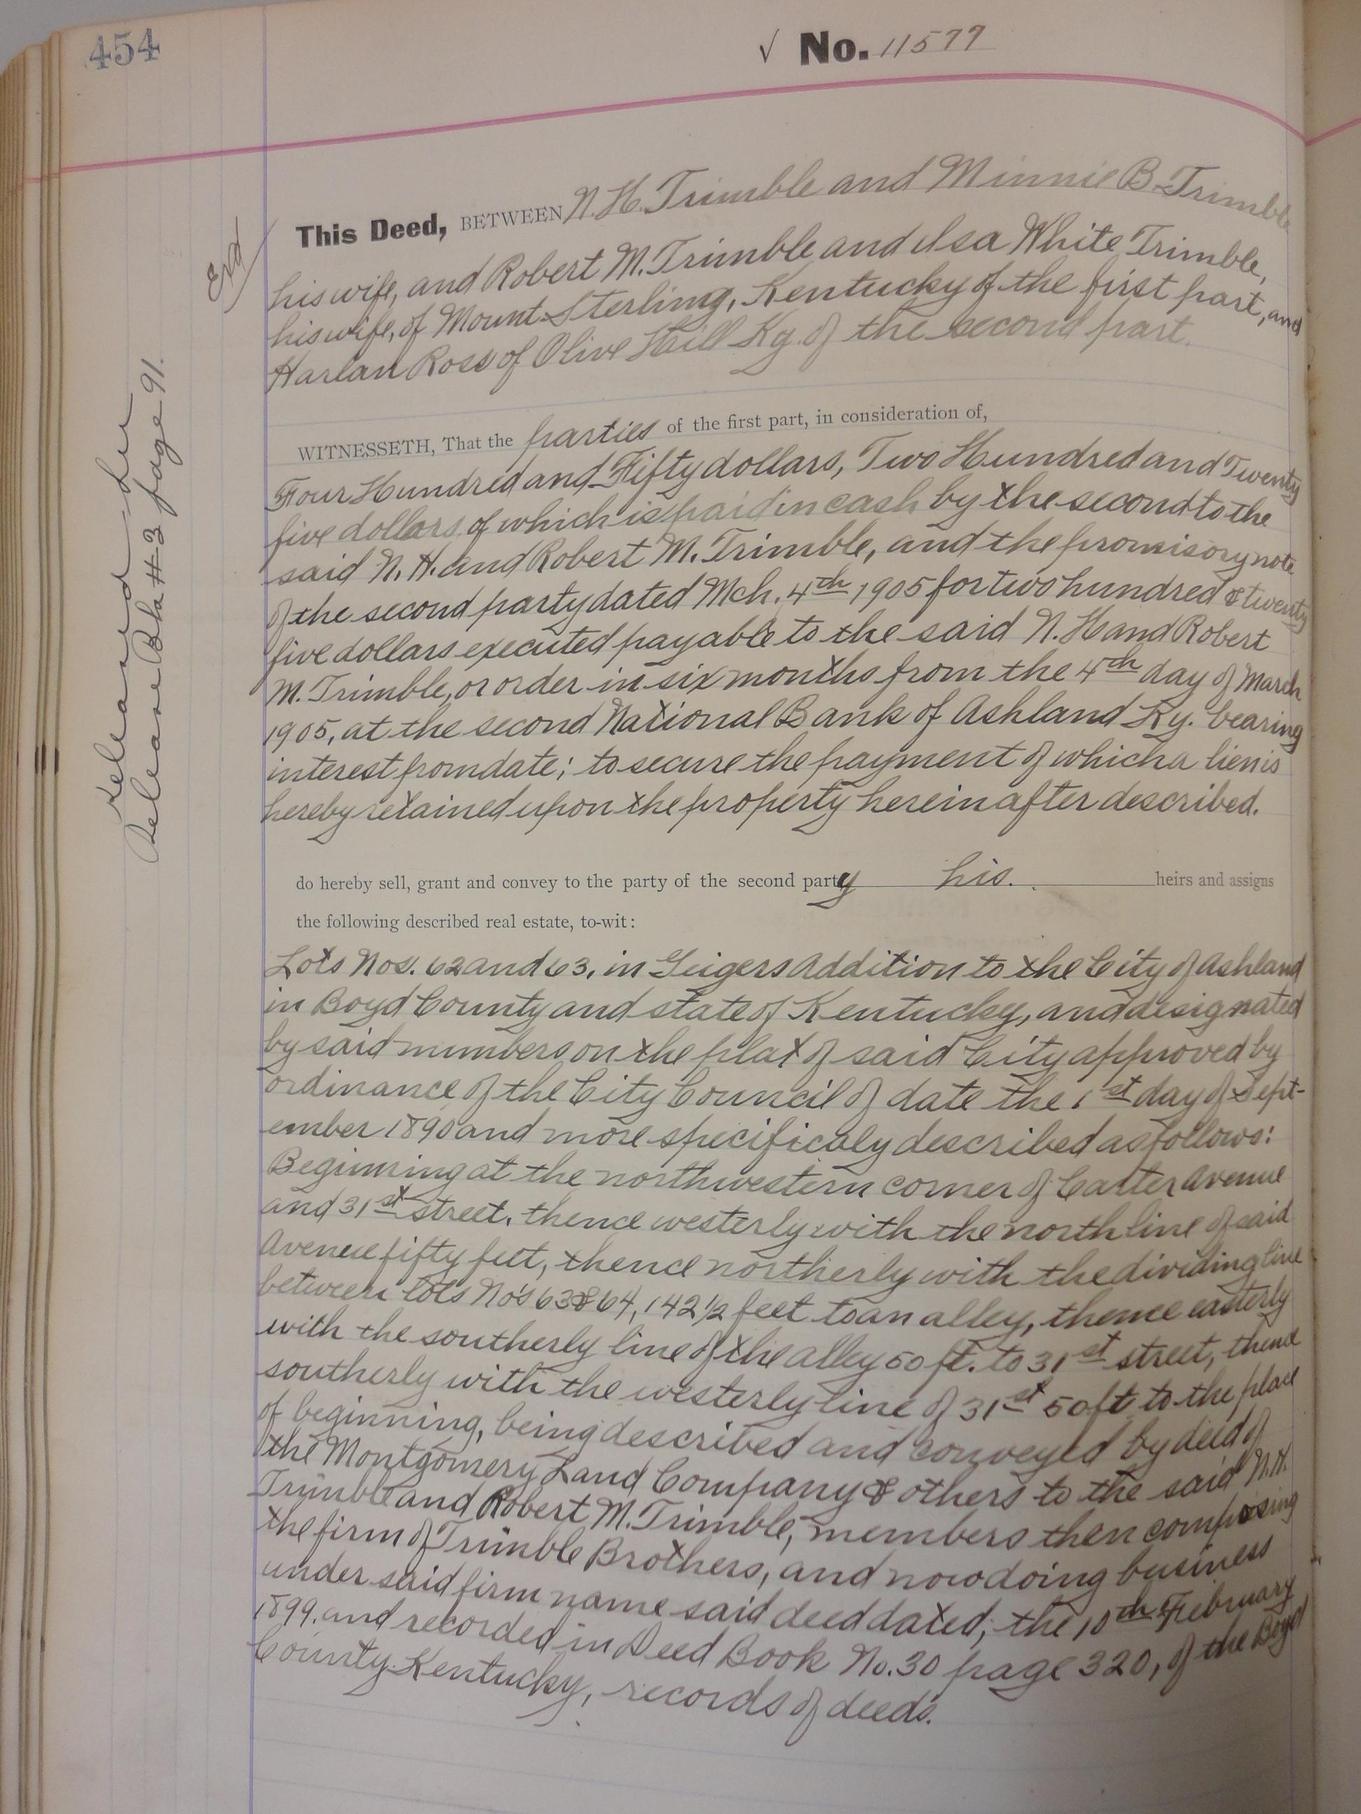 454
✓ No. 11577
Exd
This Deed, BETWEEN N. H. Trimble and Minnie B. Trimble
his wife, and Robert M. Trimble and Isa White Trimble,
his wife, of Mount Sterling, Kentucky of the first part, and
Harlan Ross of Olive Hill Ky. of the second part.
WITNESSETH, That the parties of the first part, in consideration of,
Four Hundred and Fifty dollars, Two Hundred and Twenty
five dollars of which is paid in cash by the second to the
said N. H. and Robert M. Trimble, and the promisory note
of the second party dated Mch. 4th 1905 for two hundred & twenty
five dollars executed payable to the said N. H and Robert
M. Trimble, or order in six months from the 4th day of March
1905, at the second National Bank of Ashland Ky. bearing
interest from date; to secure the payment of which a lien is
hereby retained upon the property herein after described.
do hereby sell, grant and convey to the party of the second party his. heirs and assigns
the following described real estate, to-wit:
Lots Nos. 62 and 63, in Geigers Addition to the City of Ashland
in Boyd County and state of Kentucky, and designated
by said numbers on the plat of said City approved by
ordinance of the City Council of date the 1st day of Sept-
ember 1890 and more specificaly described as follows:
Beginning at the northwestern corner of Carter Avenue
and 31st street, thence westerly with the north line of said
Avenue fifty feet, thence northerly with the dividing line
between lots No's 63 & 64, 142 1/2 feet to an alley, thence easterly
with the southerly line of the alley 50 ft. to 31st street, thence
southerly with the westerly line of 31st 50 ft to the place
of beginning, being described and conveyed by deed of
the Montgomery Land Company & others to the said N. H.
Trimble and Robert M. Trimble, members then composing
the firm of Trimble Brothers, and now doing business
under said firm name said deed dated, the 10th February
1899. and recorded in Deed Book No. 30 page 320, of the Boyd
County Kentucky, records of deeds.
Released
Release Bk # 3 page 91.